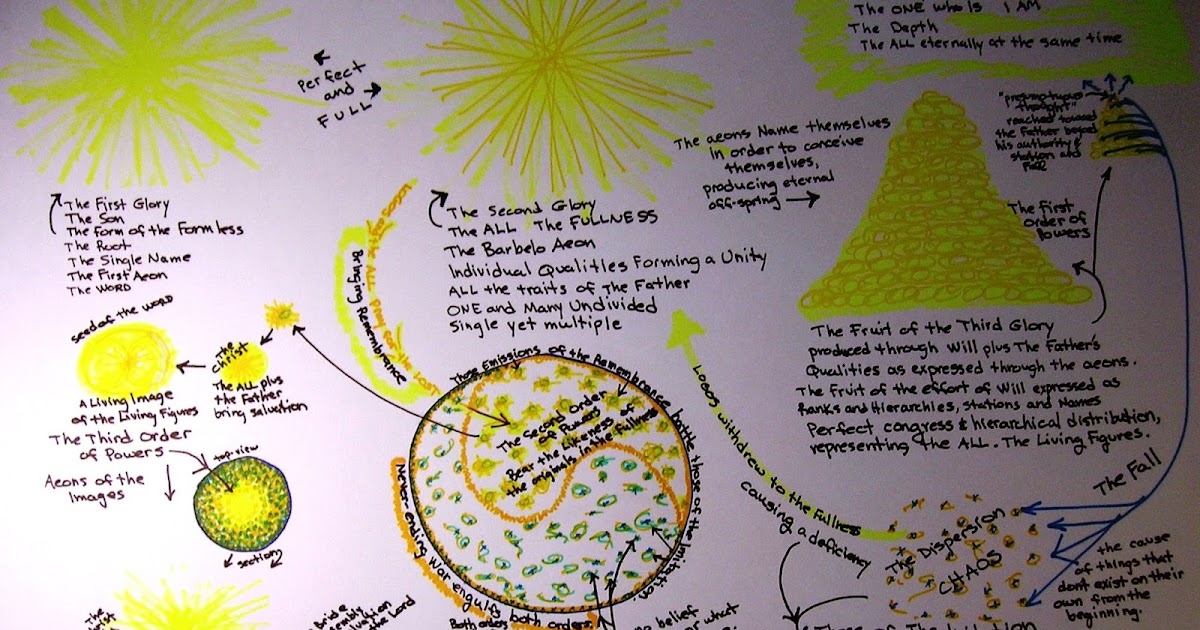 The ONE who Is I AM
The Depth
The ALL eternally at the same time
Perfect
and
FULL
"presumptuous
thought"
reached toward
the Father beyond
his authority &
station and
Fell
The aeons Name themselves
in order to conceive
themselves,
producing eternal
off-spring
The First
order of
Powers
The First Glory
The Son
The form of the Formless
The Root
The Single Name
The First Aeon
The WORD
The Second Glory
The ALL The FULLNESS
The Barbelo Aeon
Individual Qualities Forming a Unity
ALL the traits of The Father
ONE and Many Undivided
Single yet multiple
Logos & the ALL pray for the Lost
Bringing Remembrance
seed of the WORD
The
Christ
The ALL plus
the Father
bring salvation
A Living Image
of the Living Figures
The Third Order
of Powers
top-view
Aeons of the
Images
section
The Fruit of the Third Glory
produced through Will plus The Father's
Qualities as expressed through the aeons.
The Fruit of the effort of Will expressed as
Ranks and Hierarchies, Stations and Names
Perfect congress & hierarchical distribution,
representing the ALL. The Living Figures.
Those Emissions of the Remembrance battle those of the Imitation.
The Second Order
of Powers
Bear the Likeness of
the originals in the fullness
Never-ending War engulfs both orders.
Both orders
Logos withdrew to the Fullness
causing a deficiency
The Fall
The Dispersion
CHAOS
the cause
of things that
dont exist on their
own from the
beginning.
The
bride
the Lord
no belief
what
Those of The Imitation